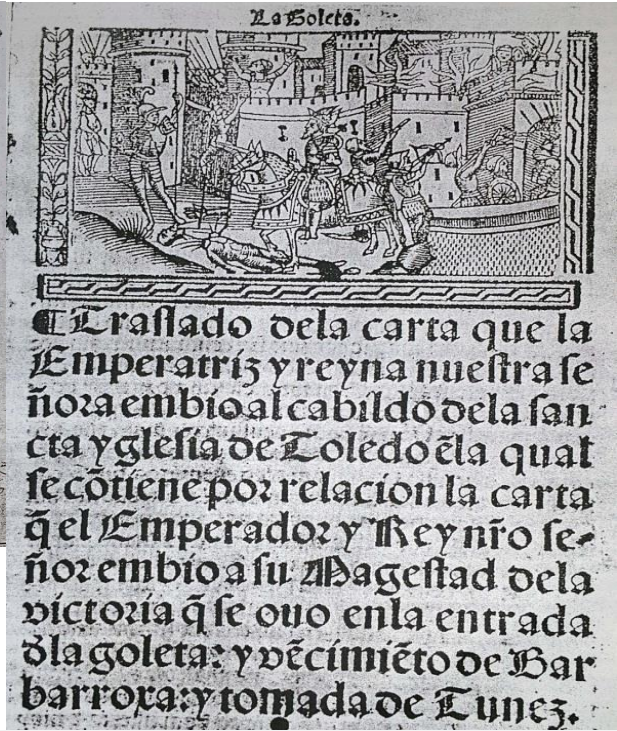 La Goleta.
¶Traslado dela carta que la
Emperatriz y reyna nuestra se
ñora embio al cabildo dela san
cta yglesia de Toledo ẽla qual
se cõtiene por relacion la carta
q̃ el Emperador y Rey nr̃o se-
ñor embio a su Magestad dela
victoria q̃ se ouo enla entrada
d̃la goleta: y vẽcimiẽto de Bar
barroxa: y tomada de Tunez.